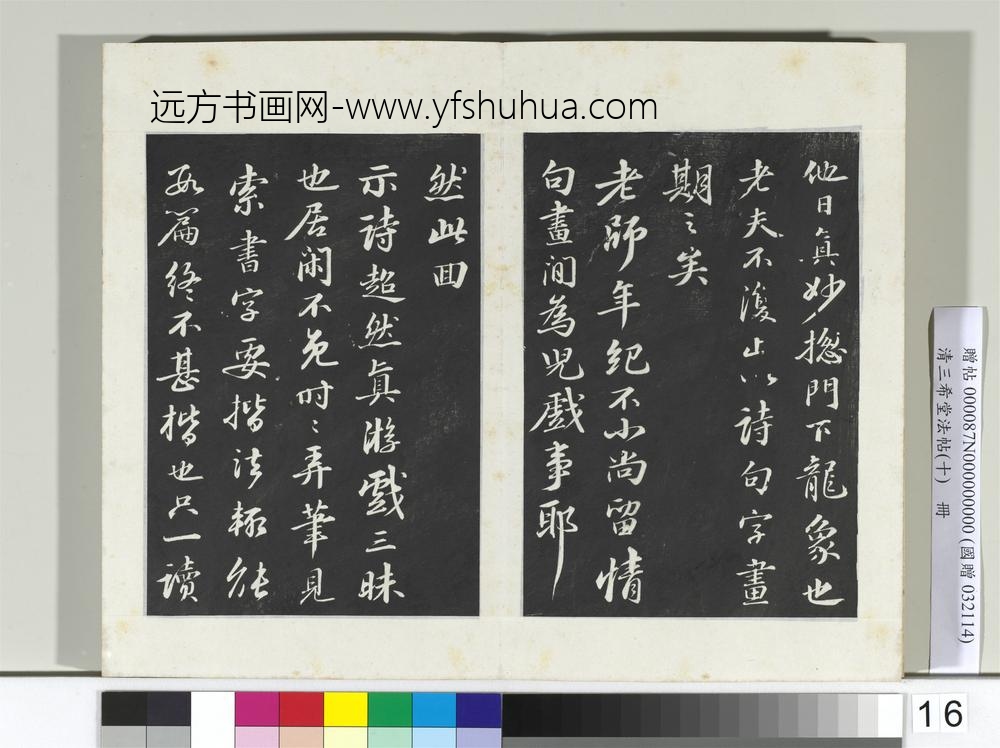 远方书画网-www.yfshuhua.com
他日真妙揔門下龍象也
老夫不復止以詩句字畫
期之矣
老師年紀不小尚留情
句畫間為兒戲事耶
然此回
示詩超然真游戲三昧
也居閑不免時〻弄筆見
索書字要楷法輒能
數篇終不甚楷也只一讀
贈帖 000087N000000000 (國贈 032114)
清三希堂法帖(十) 冊
16